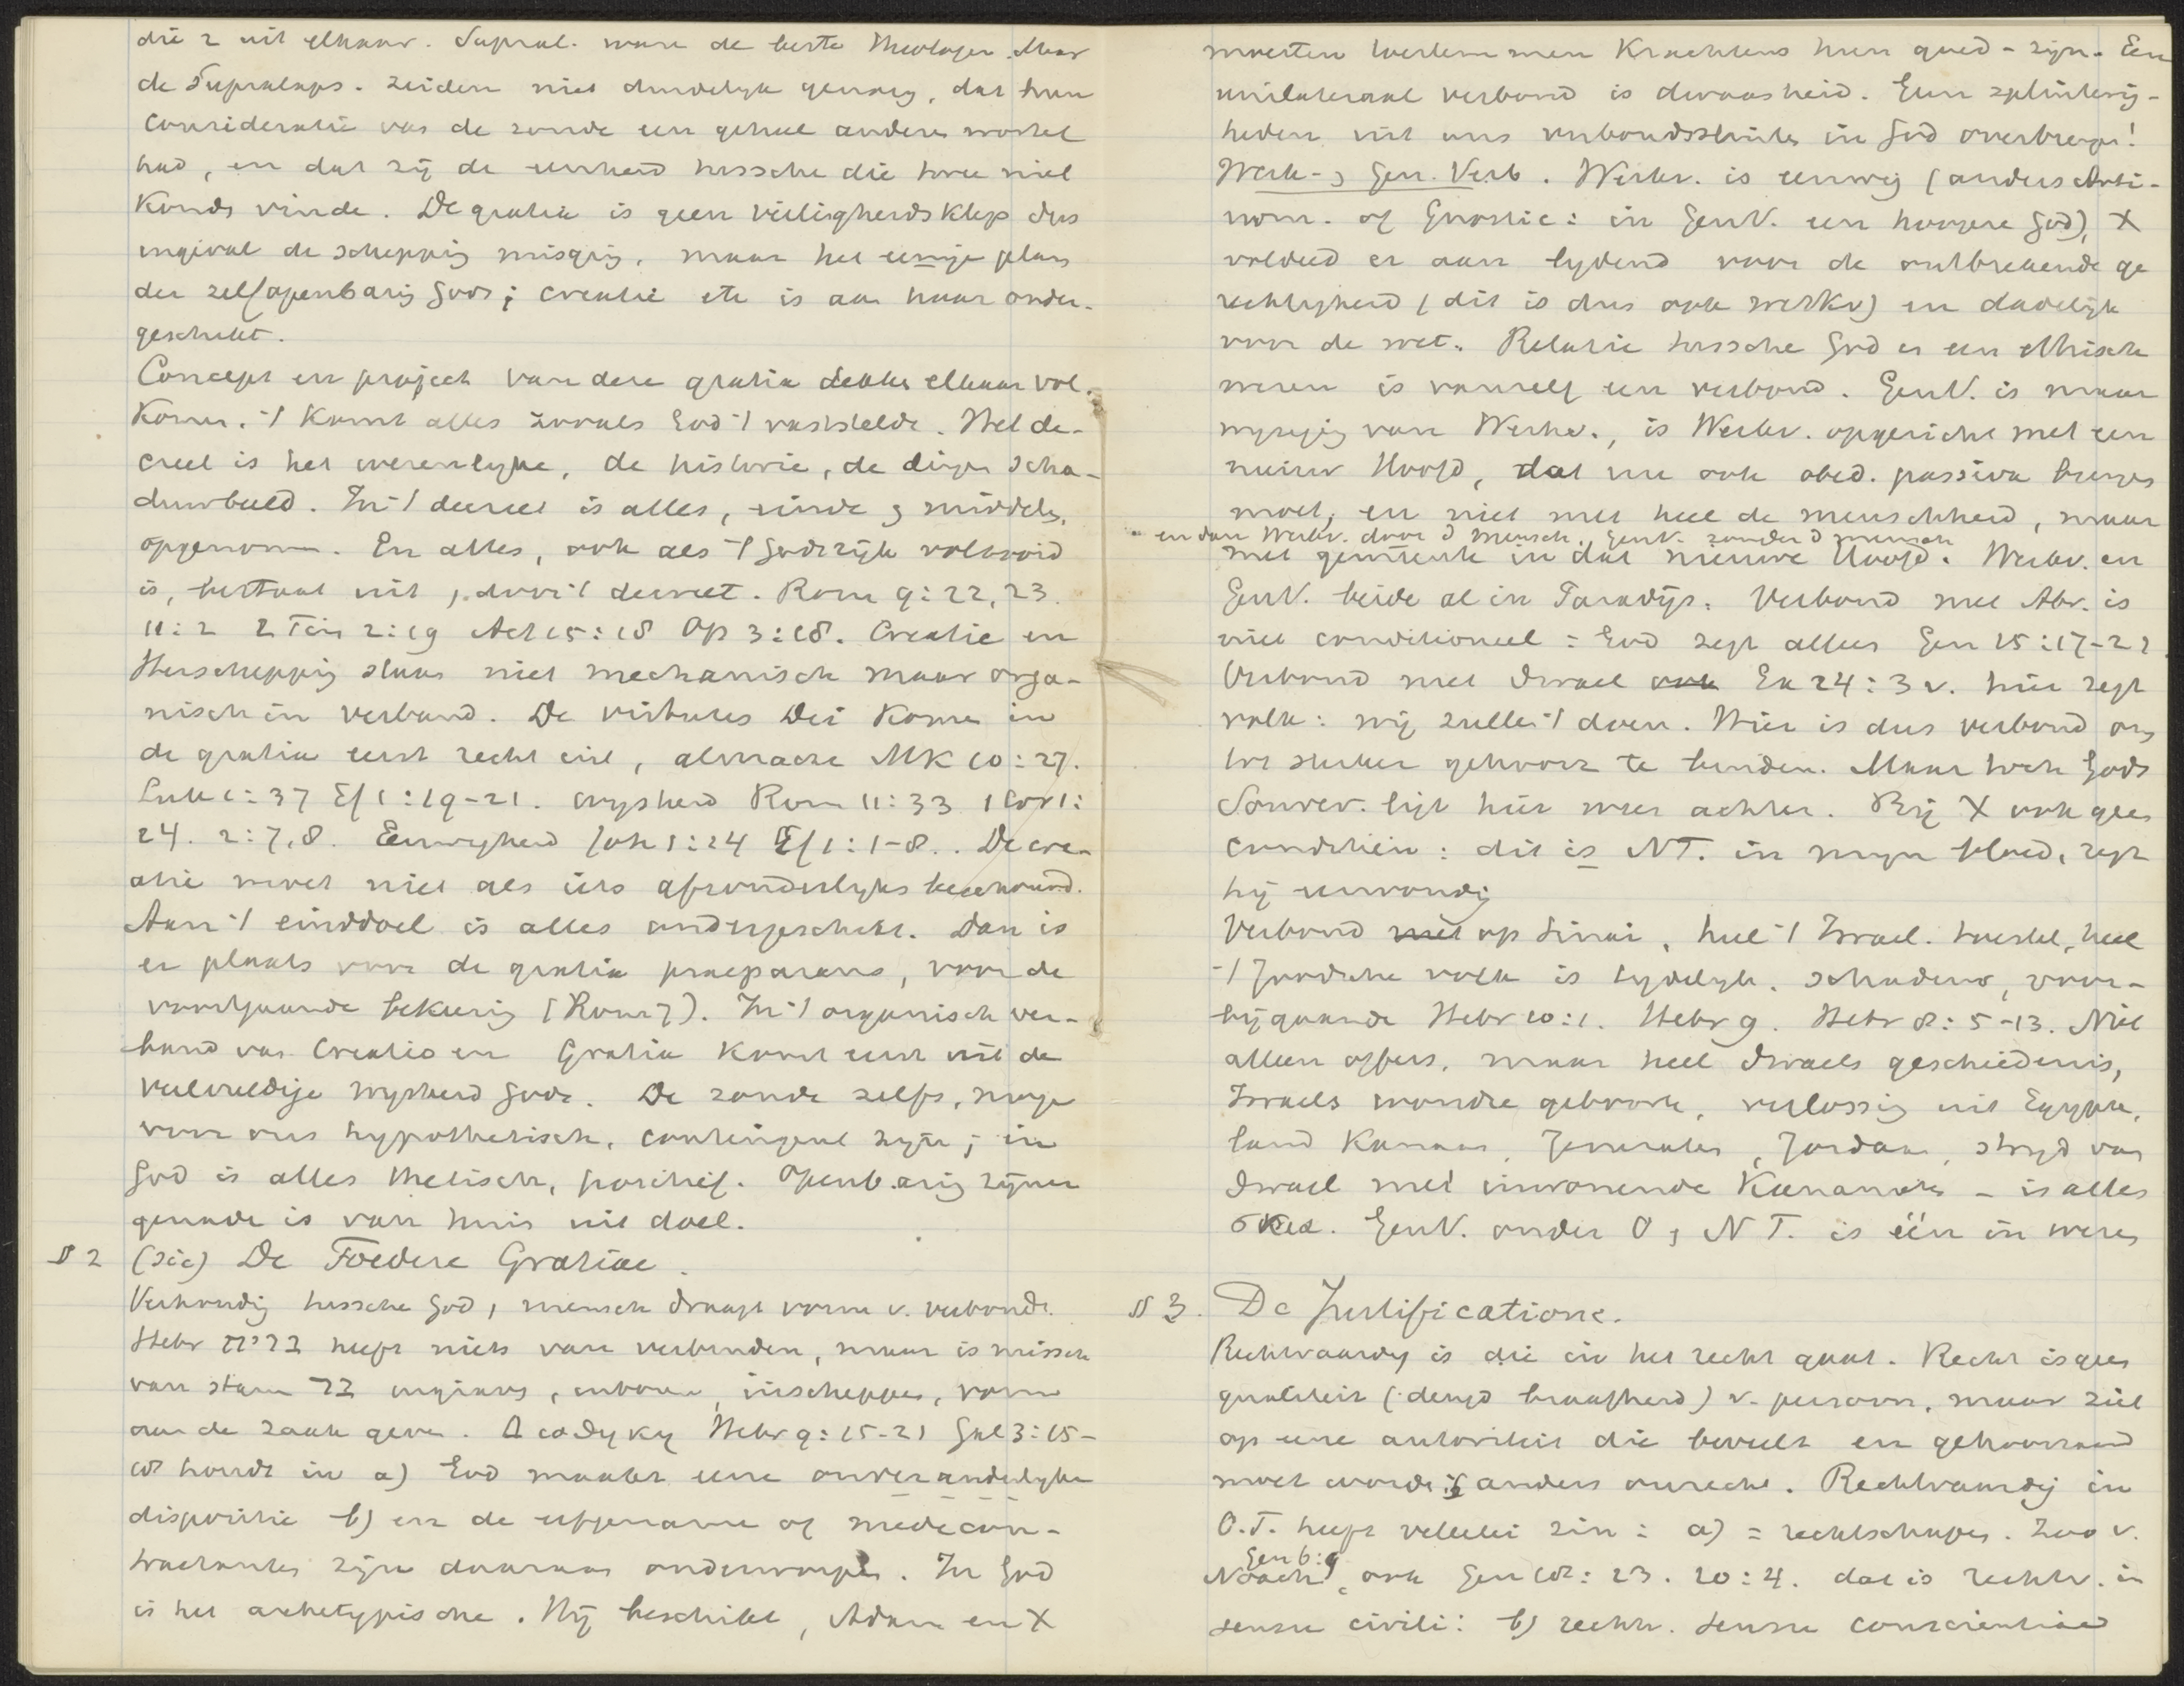 die 2 uit elkaar. Supral. ware de beste Theologen. Maar
de Supralaps. zeiden niet duidelijk genoeg, dat hun
consideratie van de zonde een geheel andere wortel
had, en dat zij de eenheid tussche die twee niet
konde vinde. De gratia is geen veiligheidsklep dus
ingeval de schepping misging, maar het eenige plan
der zelfopenbarig Gods; creatie etc is aan haar onder-
geschikt.
Concept en project van deze gratia dekke elkaar vol-
kome. 't komt alles zooals God 't vaststelde. Het de-
creet is het wezenlyke, de historie, de dinge scha-
duwbeeld. In 't decreet is alles, einde & middele,
opgenome. En alles, ook als 't Godsrijk voltooid
is, bestaat uit, door 't decreet. Rom 9:22,23.
11:2 2 Tim 2:19 Act 15:18 Op 3:18. Creatie en
Herschepping staan niet mechanisch maar orga-
nisch in verband. De virtutes Dei kome in
de gratia eerst recht uit, almacht MK 10:27.
Luk 1:37 Ef 1:19-21. wysheid Rom 11:33 1 Cor 1:
24. 2:7,8. Eeuwigheid Joh 1:24 Ef 1:1-8.. De cre-
atie moet niet als iets afzonderlyks beschouwd.
Aan 't einddoel is alles ondergeschikt. Dan is
er plaats voor de gratia praeparans, voor de
voortgaande bekeerig (Rom 7). In 't organisch ver-
band van Creatio en Gratia komt eerst uit de
veelvuldige wysheid Gods. De zonde zelfs, moge
voor ons hypothetisch, contingent zijn; in
God is alles thetisch, positief. Openb.arig zijner
genade is van huis uit doel.
§ 2 (sic) De Foedere Gratiae.
Verhoudig tussche God, mensch draagt vorm v. verbond.
Hebr ברית heeft niets van verbinden, maar is missch
van stam בר insnijden, inhouwe, inscheppe, vorm
aan de zaak geve. Διαθηκη Hebr 9:15-21 Gal 3:15-
18 houdt in a) God maakt eene onveranderlyke
dispositie b) en de erfgename of medecon-
tractantes zijn daaraan onderworpe. In God
is het archetypische. Hij beschikt, Adam en X
moesten toestemmen krachtens hun goed-zijn. Een
unilateraal verbond is dwaasheid. Geen spitsvig-
heden uit ons verbondssluite in God overbrenge!
Werk- & Gen. Verb. Werkv. is eeuwig (anders Anti-
nom. of Gnostic: in GenV. een hoogere God), X
voldeed er aan lydend voor de ontbrekende ge
rechtigheid (dit is dus ook werkv) en dadelijk
voor de wet. Relatie tussche God en een ethisch
wezen is vanzelf een verbond. GenV. is maar
wijziging van Werkv., is Werkv. opgericht met een
nieuw Hoofd, dat nu ook obed. passiva brenge
moet, en niet met heel de menschheid, maar
en dan Werkv. door d mensch, GenV. zonder d mensch
met gemeente in dat nieuwe Hoofd. Werkv. en
GenV. beide al in Paradijs. Verbond met Abr. is
niet conditioneel: God zegt alles Gen 15:17-21
Verbond met Israel Ex 24:3 v. hier zegt
volk: wij zulle 't doen. Hier is dus verbond om
tot sterker gehoorz te binden. Maar toch Gods
Souver. ligt hier weer achter. Bij X ook geen
conditiën: dit is NT. in mijn bloed, zegt
hij eenvoudig
Verbond op Sinai, heel 't Israel. toestel, heel
't Joodsche volk is tydelyk, schaduw, voor-
bijgaande Hebr 10:1. Hebr 9. Hebr 8:5-13. Niet
alleen offers, maar heel Israels geschiedenis,
Israels wondre geboorte, verlossig uit Egypte,
land Kanaan, Jerusalem, Jordaan, stryd van
Israel met inwonende Kanaanite - is alles
σκια. GenV. onder O & N T. is één in weze
§ 3. De Justificatione.
Rechtvaardig is die in het recht gaat. Recht is geen
qualiteit (deugd braafheid) v. persoon, maar ziet
op eene autoriteit die beveelt en gehoorzaamd
moet worde is anders onrecht. Rechtvaardig in
O.T. heeft velerlei zin: a) = rechtschape. Zoo v.
Noach Gen 6:9, ook Gen 18:23. 20:4. dat is rechtv. in
sensu civili: b) rechtv. sensu conscientiae